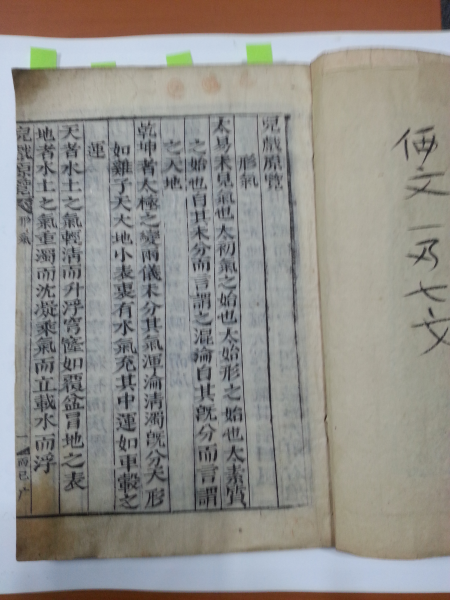 兒戱原覽
形氣
太易未見氣也太初氣之始也太始形之始也太素質
之始也自其未分而言謂之混淪自其旣分而言謂
之天地
乾坤者太極之變兩儀未分其氣渾淪淸濁旣分天形
如雞子天大地小表裏有水氣充其中運如車轂之
運
天者水土之氣輕淸而升浮穹窿如覆盆冒地之表
地者水土之氣重濁而沈凝乘氣而立載水而浮
兒戱原覽 形氣 一
文
七文